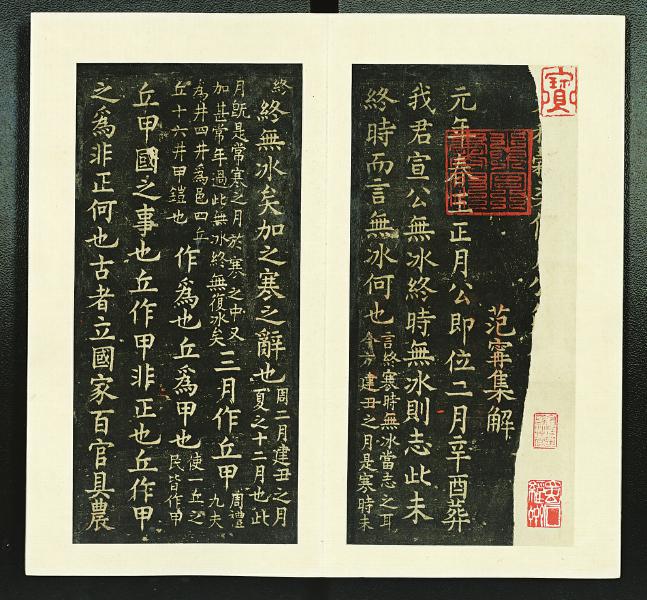 寶
范甯集解
元年春王正月公即位二月辛酉葬
我君宣公無冰終時無冰則志此未
終時而言無冰何也
言終寒時無冰當志之耳
今方建丑之月是寒時未
終
終無冰矣加之寒之辭也
周二月建丑之月
夏之十二月也此
月旣是常寒之月於寒之中又
加甚常年過此無冰終無復冰矣
三月作丘甲
周禮
九夫
為井四井為邑四丘
丘十六井甲鎧也
作為也丘為甲也
使一丘之
民皆作甲
丘甲國之事也丘作甲非正也丘作甲
之為非正何也古者立國家百官具農